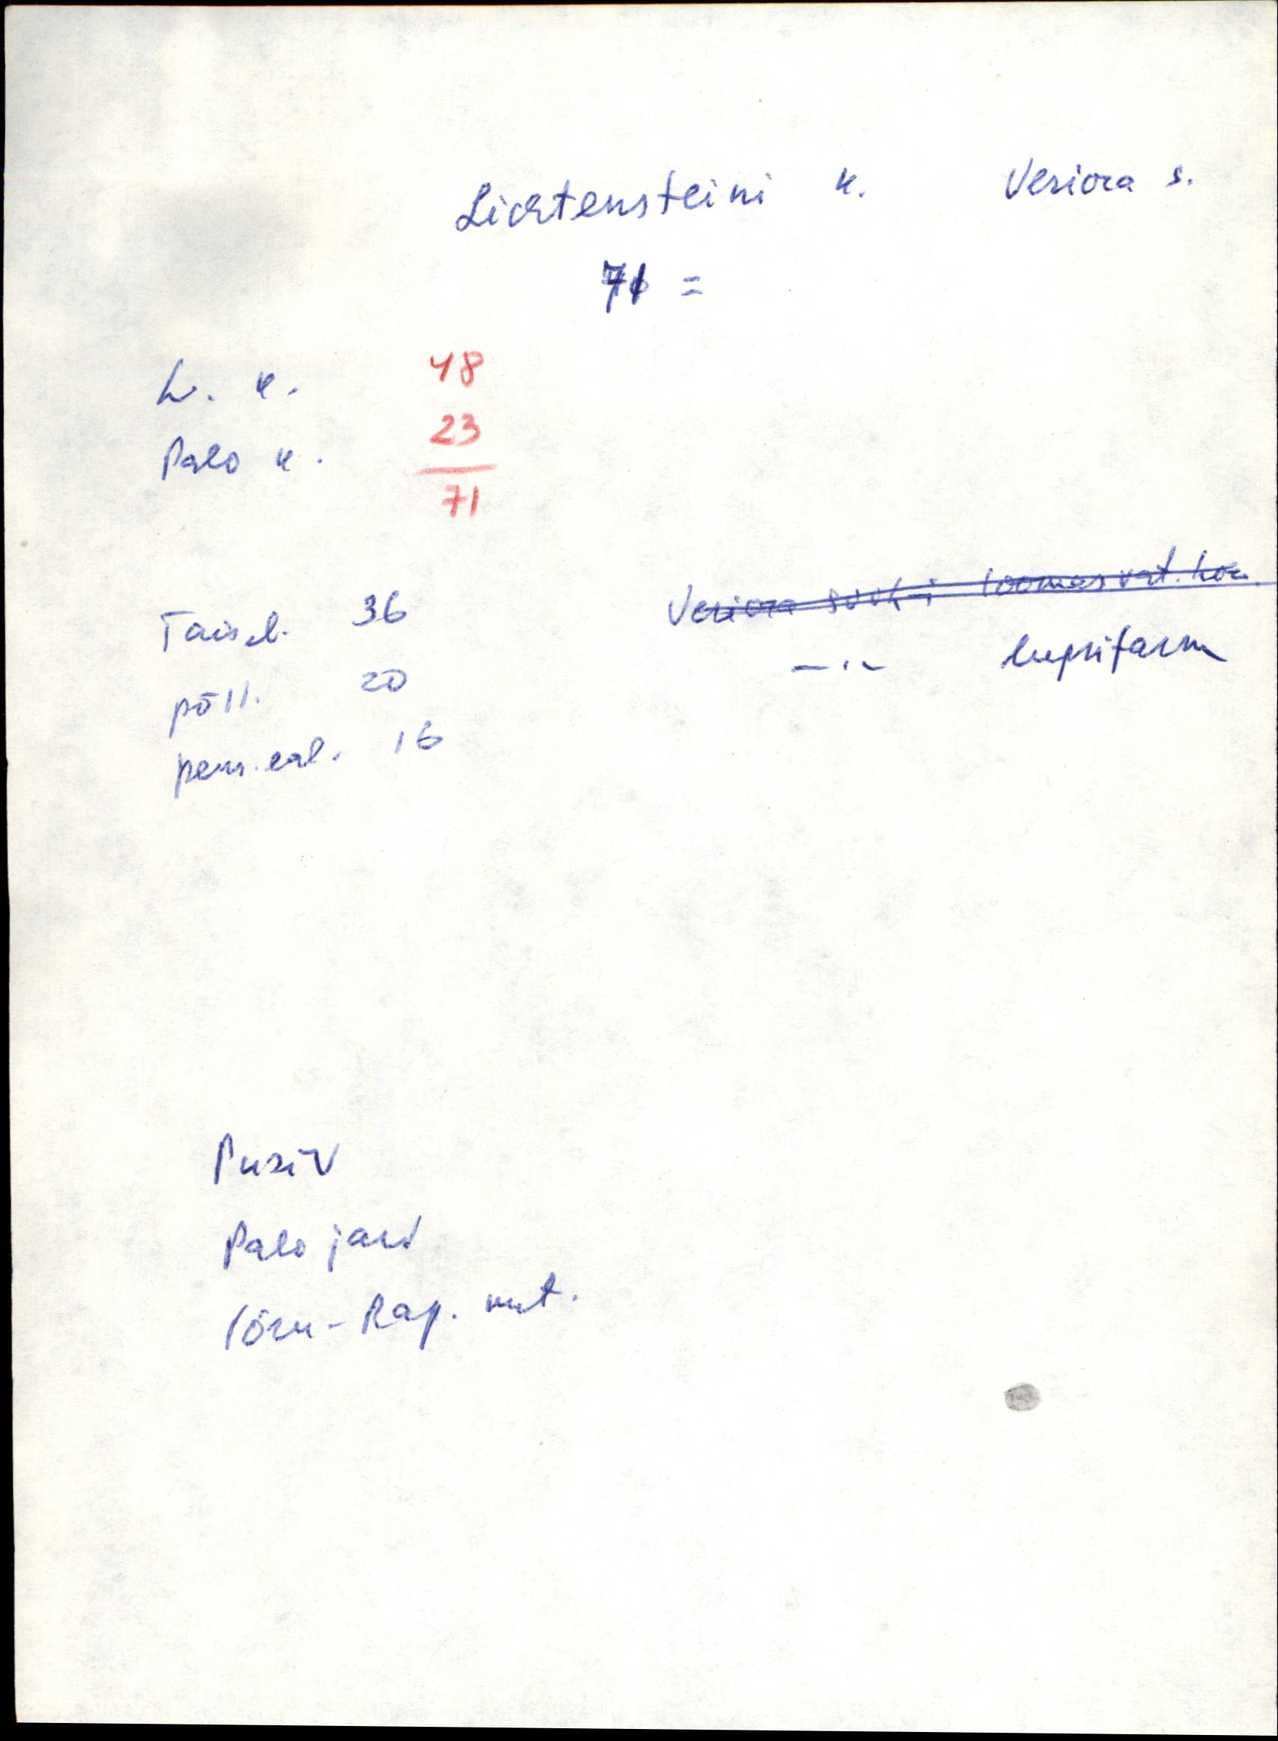 Lichtensteini k. Veriora s.
71 =
L. k. 48
Palo k. 23
71
Täisel. 36
põll. 20
pens. eal. 16
Veriora sovh-i loomasvat. hoo.
— " — lüpsifarm
Palo järv
Võru-Räp. mnt.